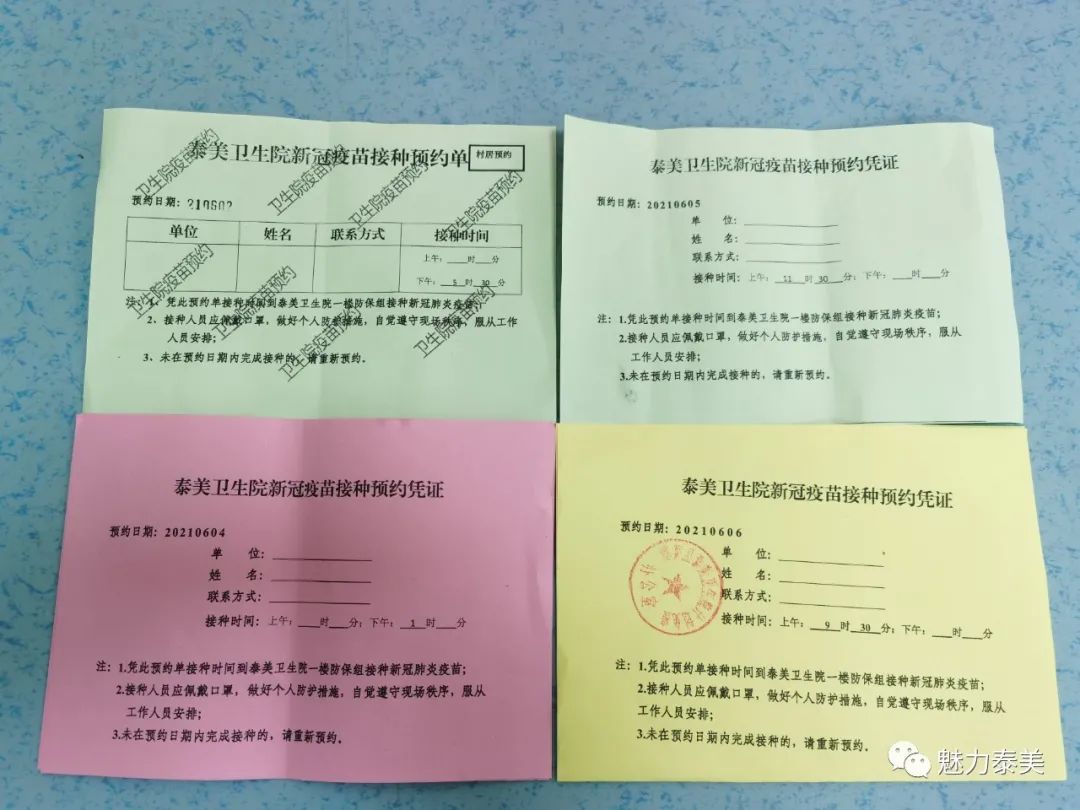 泰美卫生院新冠疫苗接种预约单
村居预约
预约日期：210602
单位 姓名 联系方式 接种时间
上午：____时___分
下午：__5__时_30_分
注：1、凭此预约单接种时间到泰美卫生院一楼防保组接种新冠肺炎疫苗；
2、接种人员应佩戴口罩，做好个人防护措施，自觉遵守现场秩序，服从工作
人员安排；
3、未在预约日期内完成接种的，请重新预约。
卫生院疫苗预约
卫生院疫苗预约
卫生院疫苗预约
卫生院疫苗预约
卫生院疫苗预约
卫生院疫苗预约
卫生院疫苗预约
卫生院疫苗预约
泰美卫生院新冠疫苗接种预约凭证
预约日期：20210605
单 位：____________
姓 名：____________
联系方式：____________
接种时间：上午：__11__时_30__分；下午：____时___分
注：1.凭此预约单接种时间到泰美卫生院一楼防保组接种新冠肺炎疫苗；
2.接种人员应佩戴口罩，做好个人防护措施，自觉遵守现场秩序，服从
工作人员安排；
3.未在预约日期内完成接种的，请重新预约。
泰美卫生院新冠疫苗接种预约凭证
预约日期：20210604
单 位：____________
姓 名：____________
联系方式：____________
接种时间：上午：____时___分；下午：__1__时___分
注：1.凭此预约单接种时间到泰美卫生院一楼防保组接种新冠肺炎疫苗；
2.接种人员应佩戴口罩，做好个人防护措施，自觉遵守现场秩序，服从
工作人员安排；
3.未在预约日期内完成接种的，请重新预约。
泰美卫生院新冠疫苗接种预约凭证
预约日期：20210606
单 位：____________
姓 名：____________
联系方式：____________
接种时间：上午：__9__时_30__分；下午：____时___分
注：1.凭此预约单接种时间到泰美卫生院一楼防保组接种新冠肺炎疫苗；
2.接种人员应佩戴口罩，做好个人防护措施，自觉遵守现场秩序，服从
工作人员安排；
3.未在预约日期内完成接种的，请重新预约。
魅力泰美